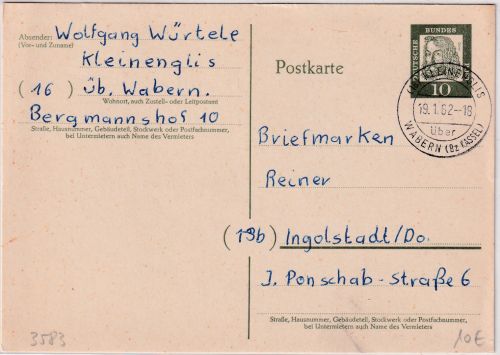 Absender:
(Vor- und Zuname)
Wolfgang Würtele
Kleinenglis
(16) üb. Wabern.
Wohnort, auch Zustell- oder Leitpostamt
Bergmannshof 10
Straße, Hausnummer, Gebäudeteil, Stockwerk oder Postfachnummer,
bei Untermietern auch Name des Vermieters
Postkarte
DEUTSCHE BUNDESPOST
10
KLEINENGLIS
19.1.62-18
über
WABERN (Bz KASSEL)
Briefmarken
Reiner
(13b) Ingolstadt/Do.
J. Ponschab-Straße 6
Straße, Hausnummer, Gebäudeteil, Stockwerk oder Postfachnummer,
bei Untermietern auch Name des Vermieters
3583
10€